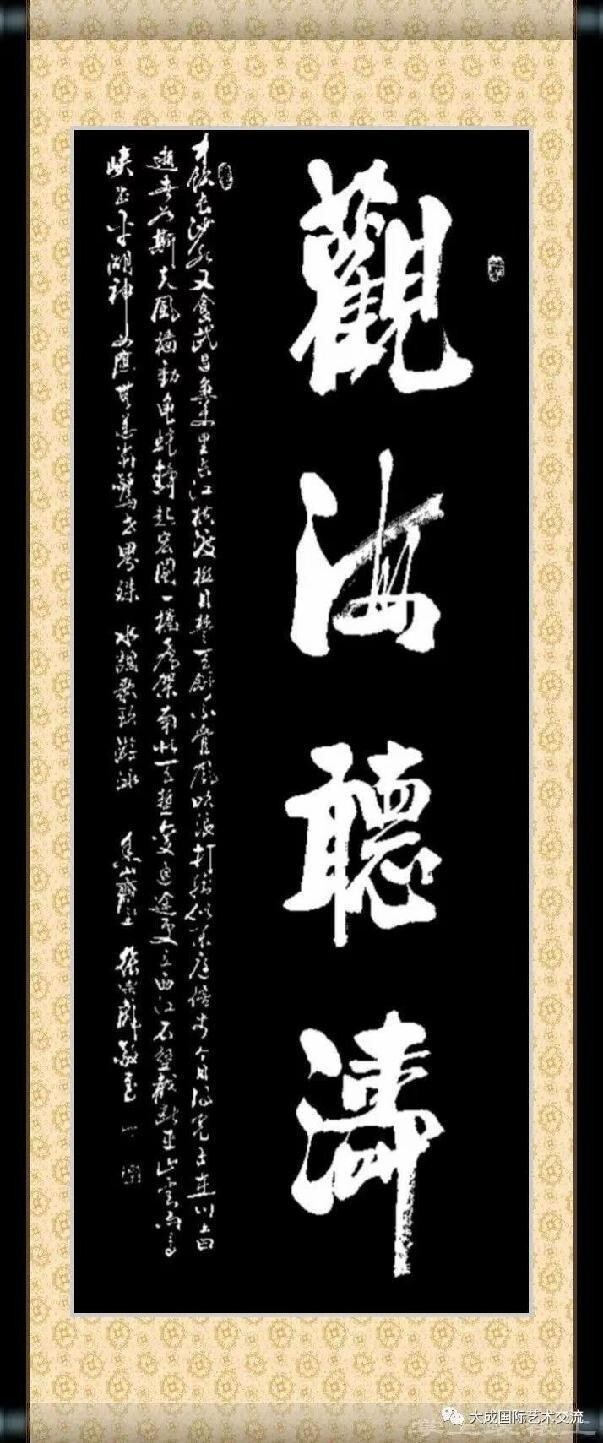 觀海聽濤
才飲长沙水又食武昌魚萬里长江橫渡極目楚天舒不管風吹浪打勝似閑庭信步今日得寬余子在川上曰
逝者如斯夫風檣動龜蛇靜起宏圖一橋飛架南北天塹變通途更立西江石壁截斷巫山雲雨高
峽出平湖神女應無恙當驚世界殊 水調歌頭游泳
大成国际艺术交流